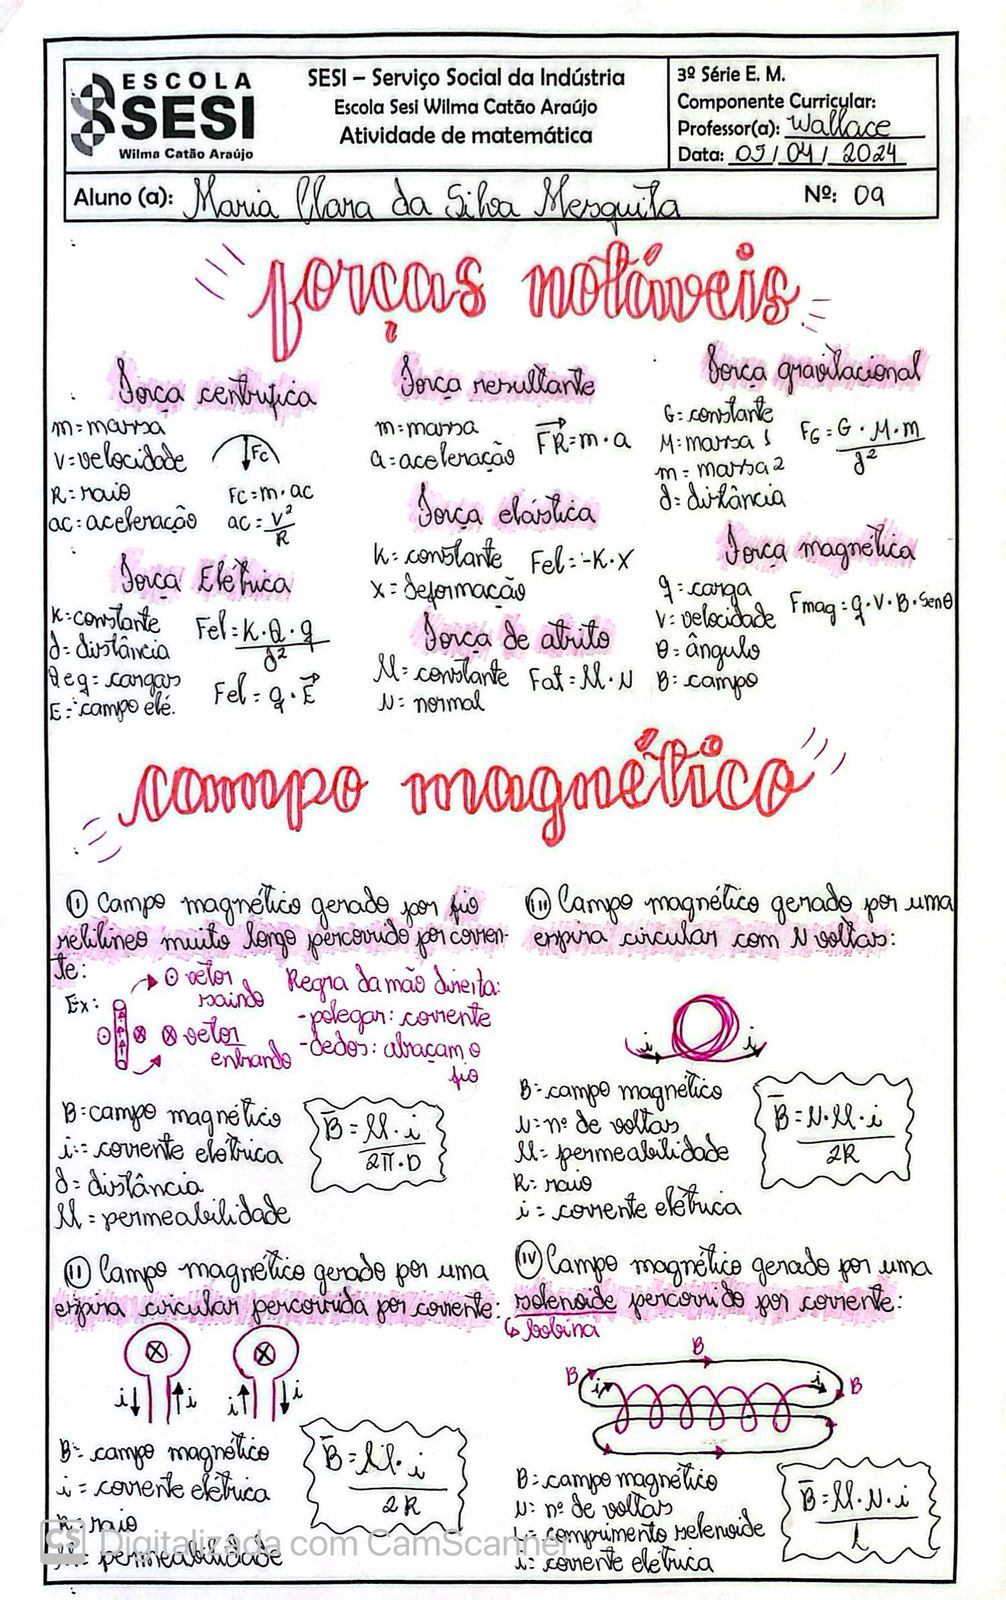 ESCOLA
SESI
Wilma Catão Araújo
SESI – Serviço Social da Indústria
Escola Sesi Wilma Catão Araújo
Atividade de matemática
3º Série E. M.
Componente Curricular:
Professor(a): Wallace
Data: 05/04/2024
Aluno (a): Maria Clara da Silva Mesquita
Nº: 09
forças notáveis
Força centrifica
m=massa
V=velocidade
R=raio
ac=aceleração
Fc
Fc=m·ac
ac=V²/R
Força Elétrica
K=constante
d=distância
Q e q=cargas
E=campo elé.
Fel=K·Q·q/d²
Fel=q·E
Força resultante
m=massa
a=aceleração
FR=m·a
Força elástica
K=constante
x=deformação
Fel=-K·X
Força de atrito
M=constante
N=normal
Fat=M·N
Força gravitacional
G=constante
M=massa 1
m=massa 2
d=distância
FG=G·M·m/d²
Força magnética
q=carga
V=velocidade
θ=ângulo
B=campo
Fmag=q·V·B·senθ
campo magnético
I Campo magnético gerado por fio
retilíneo muito longo percorrido por corren-
te:
Ex:
vetor
saindo
vetor
entrando
Regra da mão direita:
-polegar: corrente
-dedos: abraçam o
fio
B=campo magnético
i=corrente elétrica
d=distância
M=permeabilidade
B=M·i/2π·D
II Campo magnético gerado por uma
espira circular percorrida por corrente:
i i i i
B=campo magnético
i=corrente elétrica
R=raio
M=permeabilidade
B=M·i/2R
III Campo magnético gerado por uma
espira circular com N voltas:
i i
B=campo magnético
N=nº de voltas
M=permeabilidade
R=raio
i=corrente elétrica
B=N·M·i/2R
IV Campo magnético gerado por uma
solenoide percorrido por corrente:
bobina
B
B i i B
B=campo magnético
N=nº de voltas
L=comprimento selenoide
i=corrente eletrica
B=M·N·i/L
CS Digitalizada com CamScanner